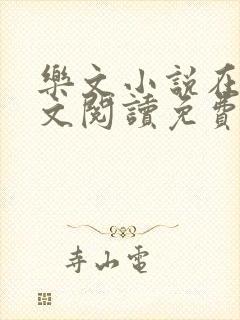 樂文小說在
文閱讀免費
寺山電